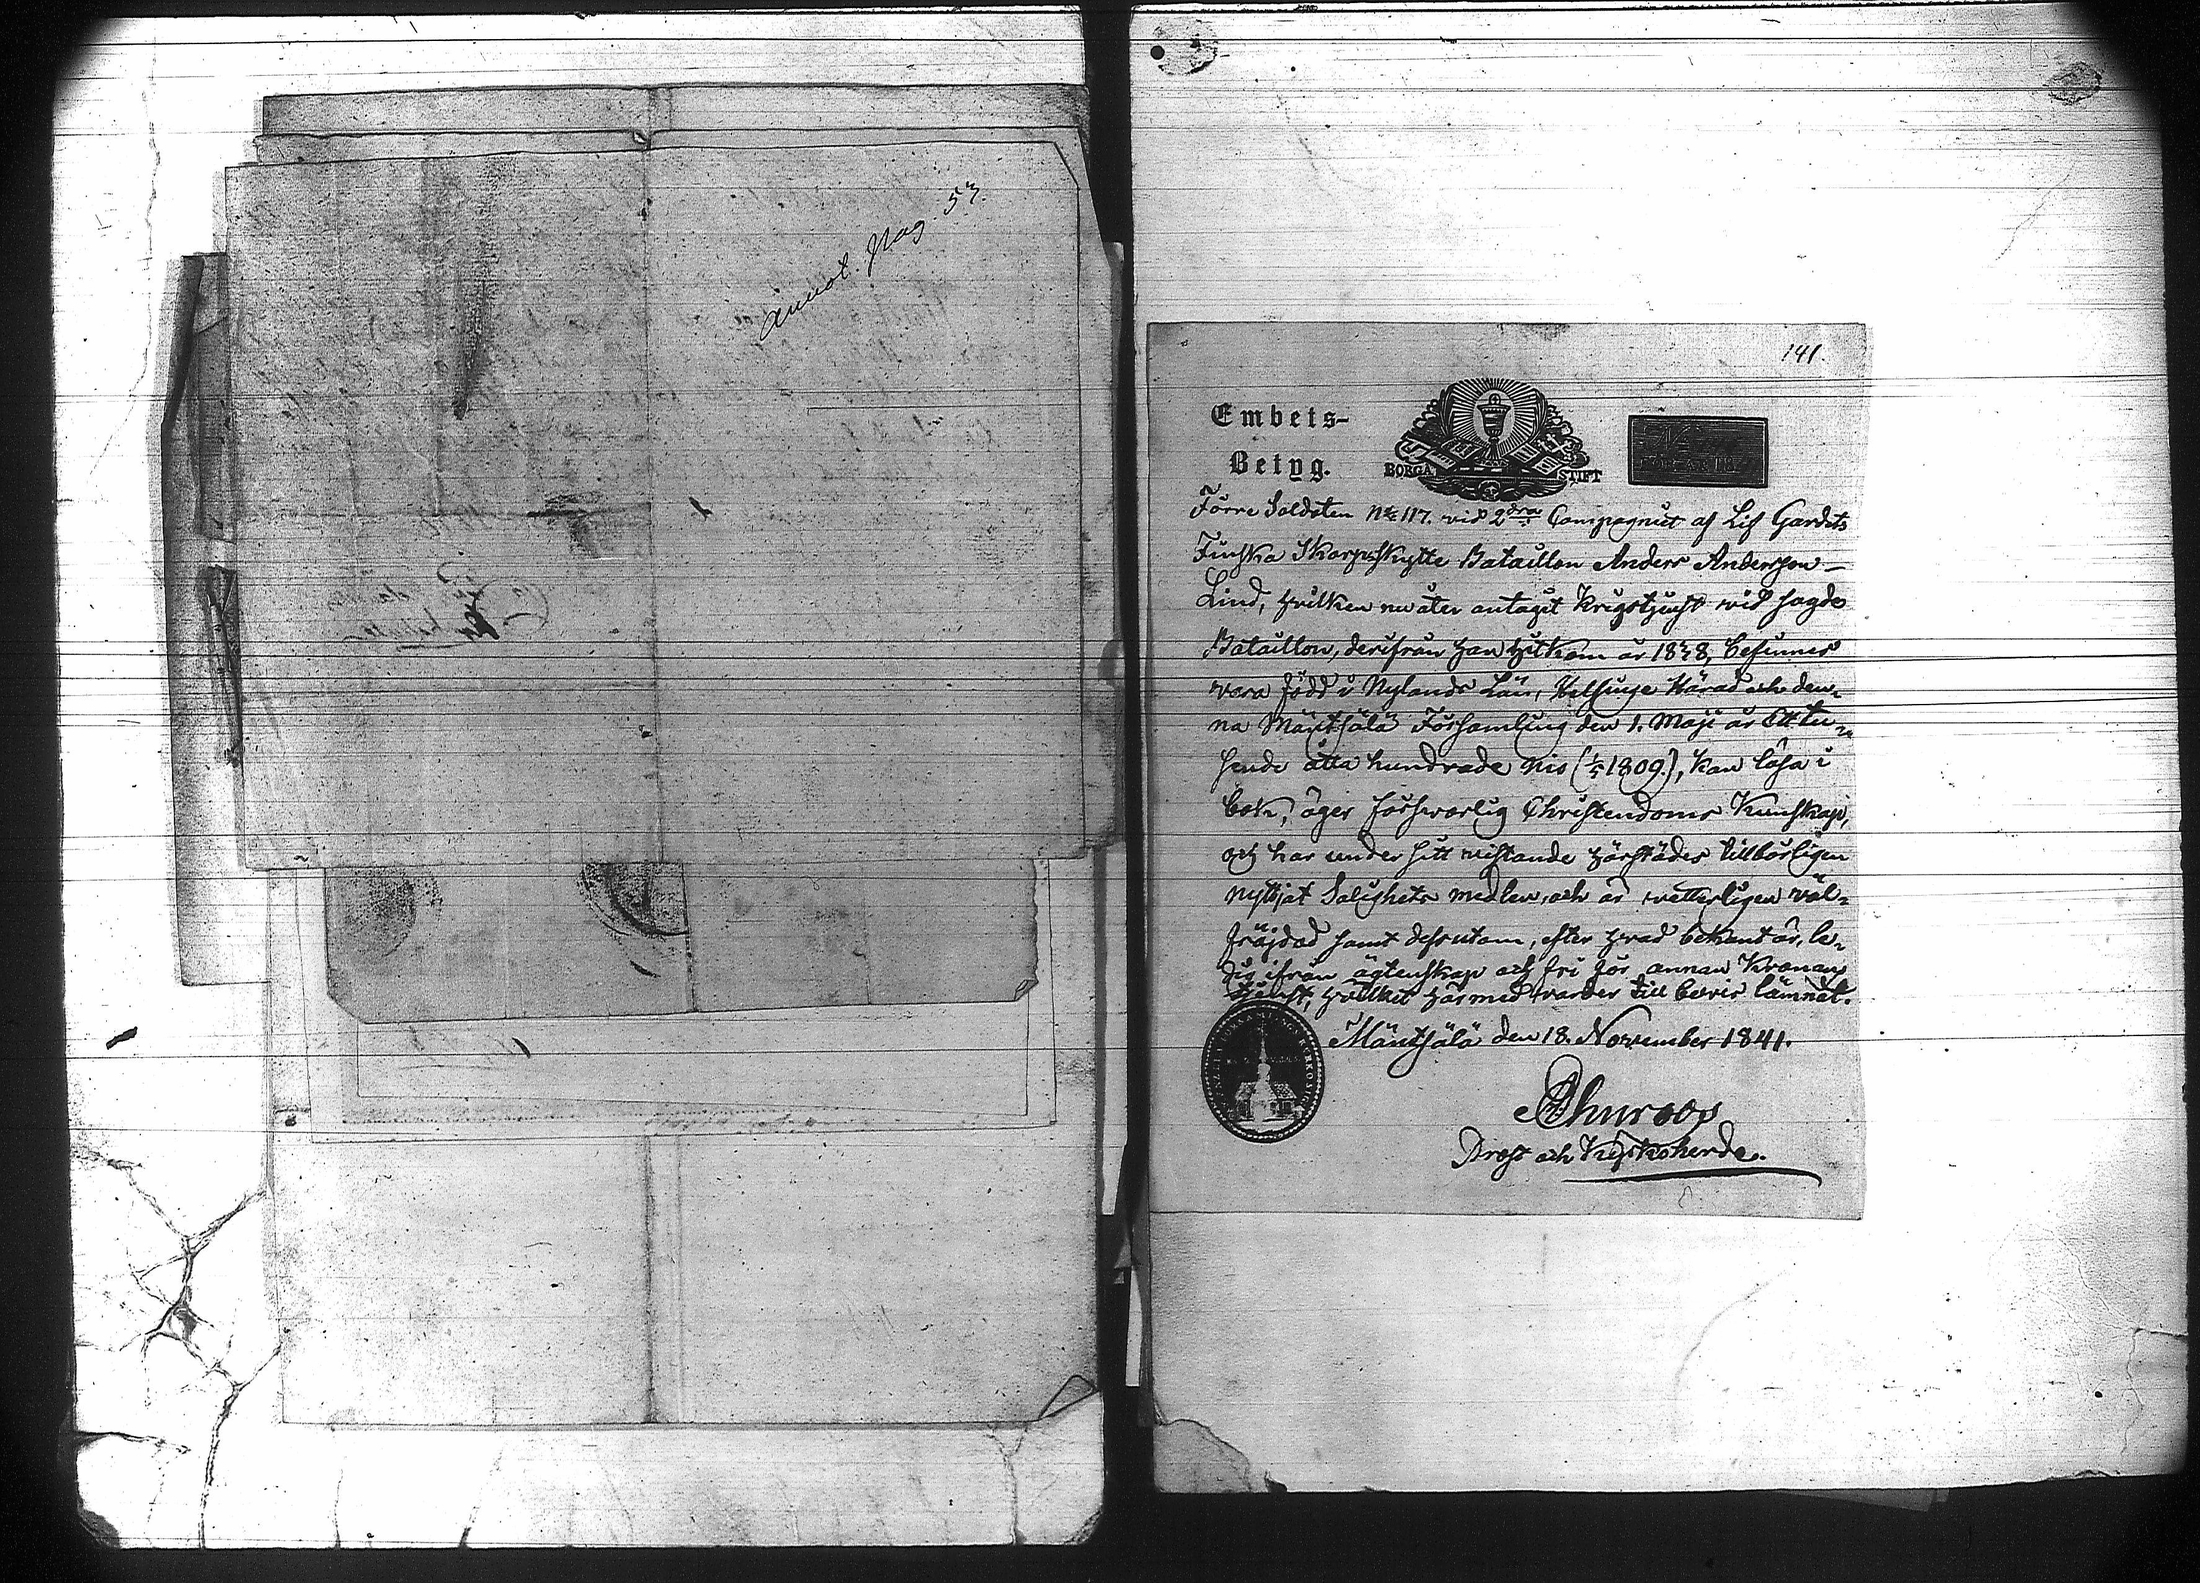 annot. pag. 53.
141.
Embets-
Betyg.
BORGÅ STIFT
Förre Soldaten No 117. vid 2dra Compagniet af Lif Gardets
Finska Skarpskytte Bataillon Anders Andersson
Lind, hvilken nu åter antagit Krigstjenst vid sagde
Bataillon, derifrån han hitkom år 1838, befinnes
vara född i Nylands Län, Helsinge Härad och den-
na Mäntsälä Församling den 1. Maji år Ett tu-
sende åtta hundrade nio (1/5 1809.), kan läsa i
bok, äger försvarlig Christendoms Kunskap,
och har under sitt vistande härstädes tillbörligen
nyttjat Salighets medlen, och är vetterligen väl-
fräjdad samt dessutom, efter hvad bekant är, le-
dig ifrån ägtenskap och fri för annan Kronans
tjenst, hvilket härmed varder till bevis lämnat.
Mäntsälä den 18. November 1841.
Prost och Kyrkoherde.